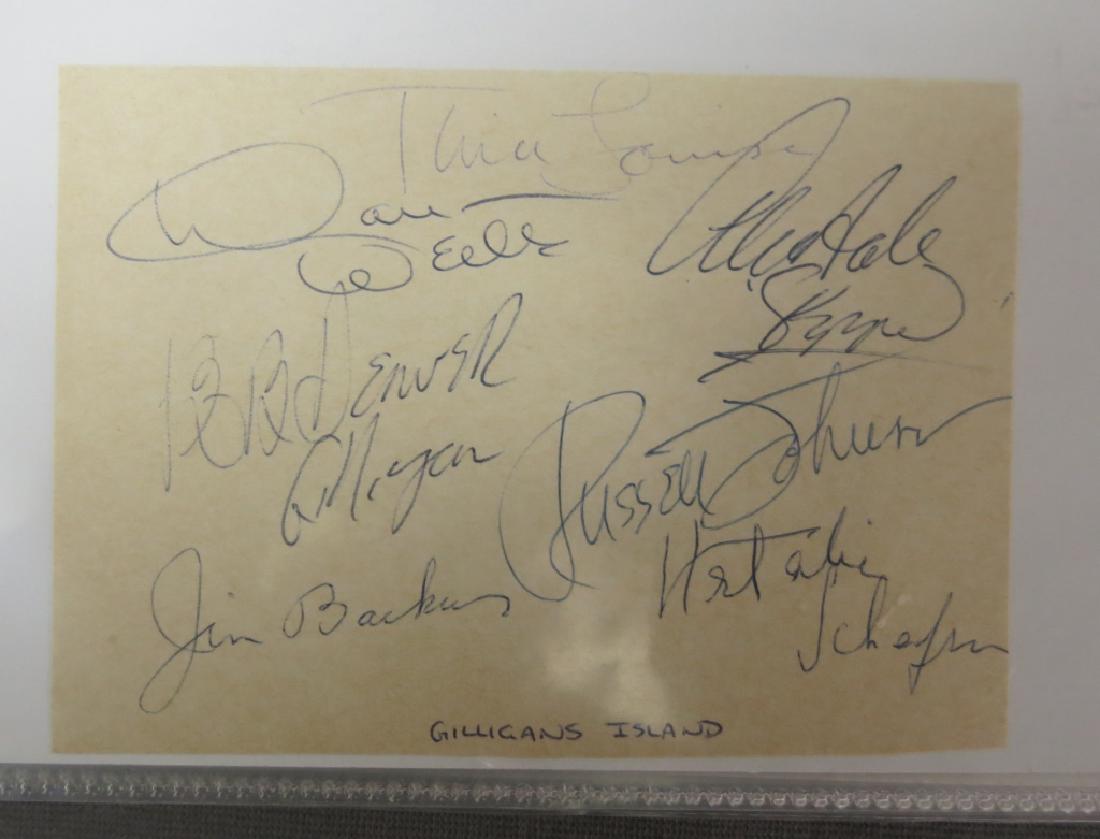 Tina Louise
Dawn
Wells
Alan Hale
Skipper
Bob Denver
Gilligan
Russell Johnson
Jim Backus
Natalie
Schafer
GILLIGANS ISLAND